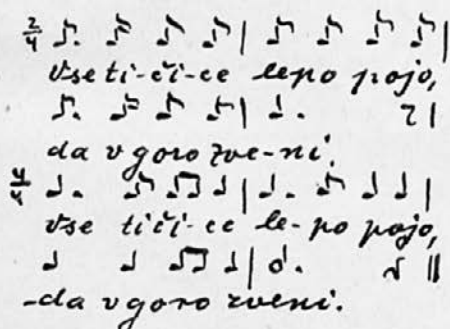 2/4
vse ti-či-ce lepo pojo,
da v goro zve-ni.
4/4
vse tiči-ce le-po pojo,
-da v goro zveni.